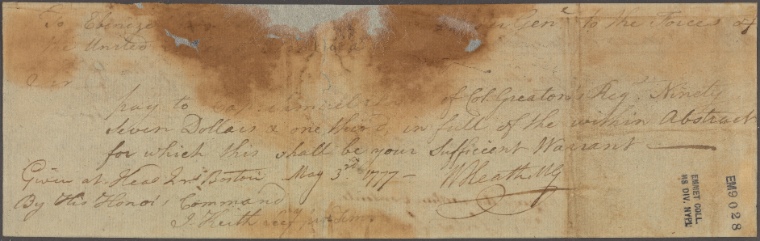 To Ebenezer Gen.l to the Forces of
the United
Sir
pay to Cap.t of Col. Greaton's Reg.t Ninety
Seven Dollars & one third, in full of the within Abstract
for which this shall be your Sufficient Warrant
Given at Head Qrs Boston May 3rd 1777 W Heath MG
By His Honors Command
J. Heath
EMMET COLL.
MS DIV. NYPL
EM9028